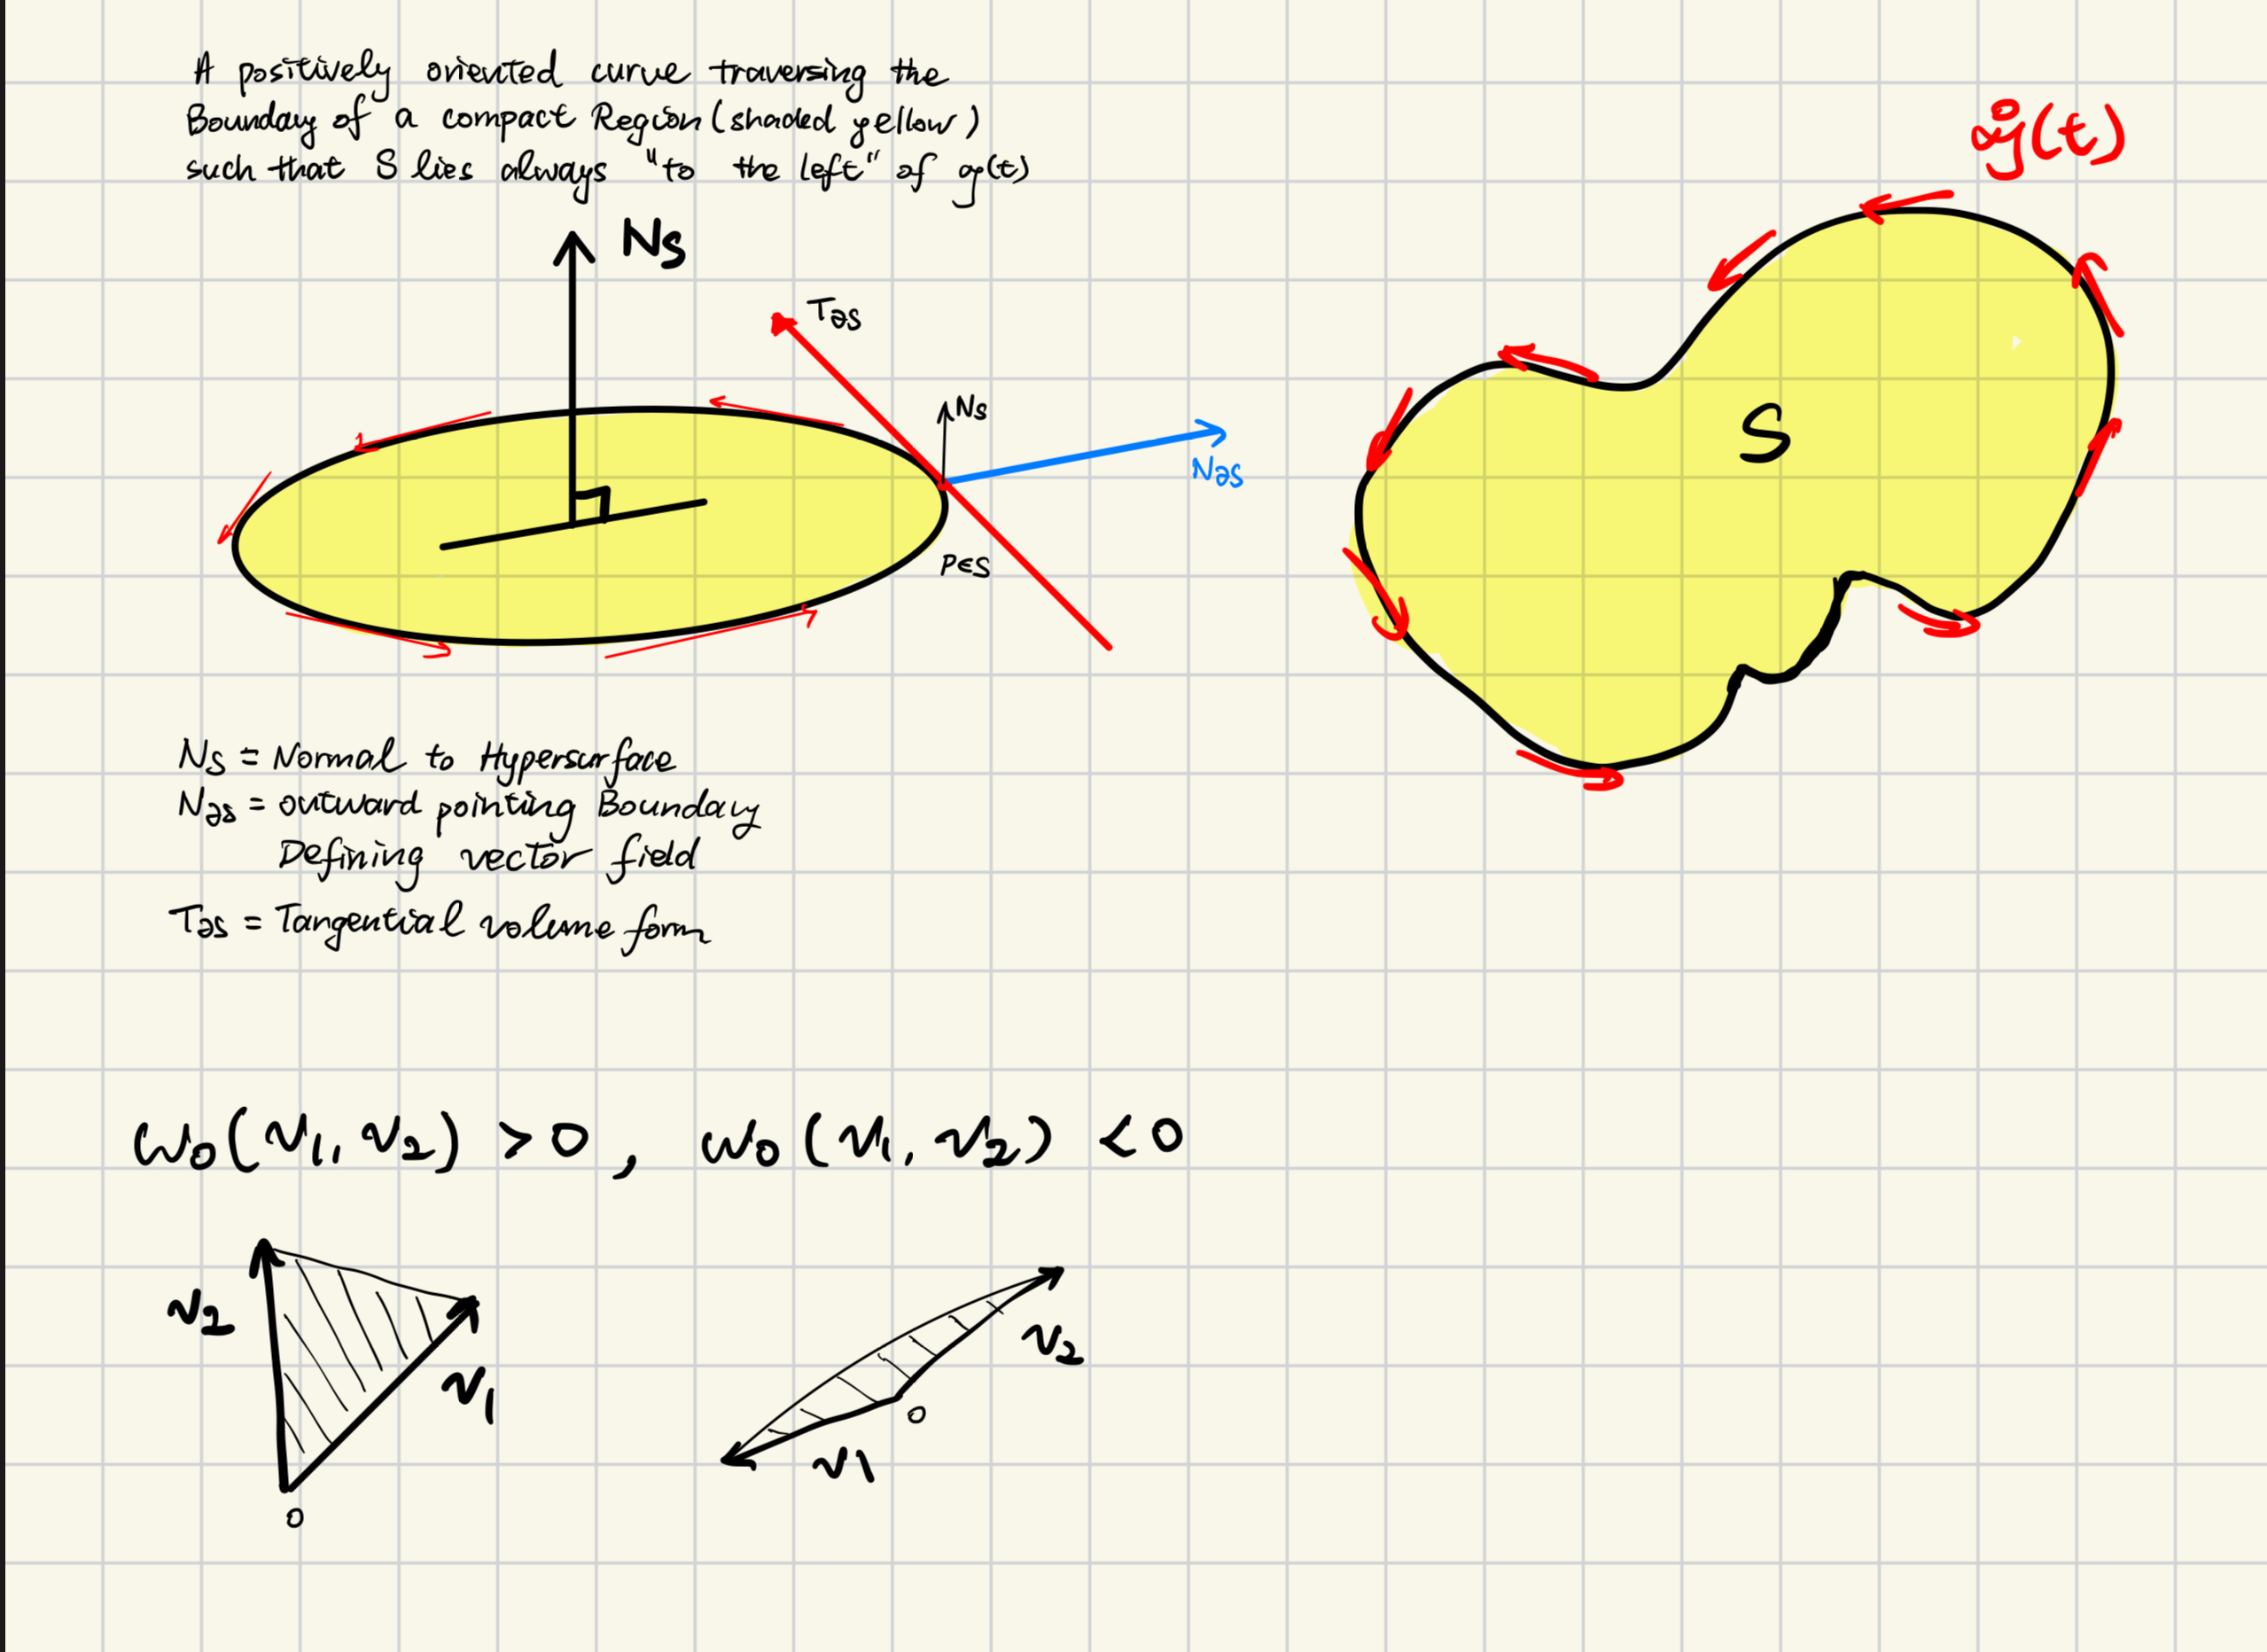 A positively oriented curve traversing the
Boundary of a compact Region (shaded yellow)
such that S lies always "to the left" of g(t)
N_S
T_∂S
N_S
N_∂S
P∈S
ġ(t)
S
N_S = Normal to Hypersurface
N_∂S = outward pointing Boundary
Defining vector field
T_∂S = Tangential volume form
ω_0(v_1, v_2) > 0, ω_0(v_1, v_2) < 0
v_2
v_1
0
v_2
0
v_1